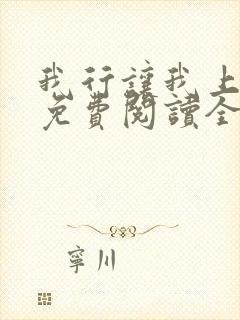 我行讓我上
免費閱讀全
寧川